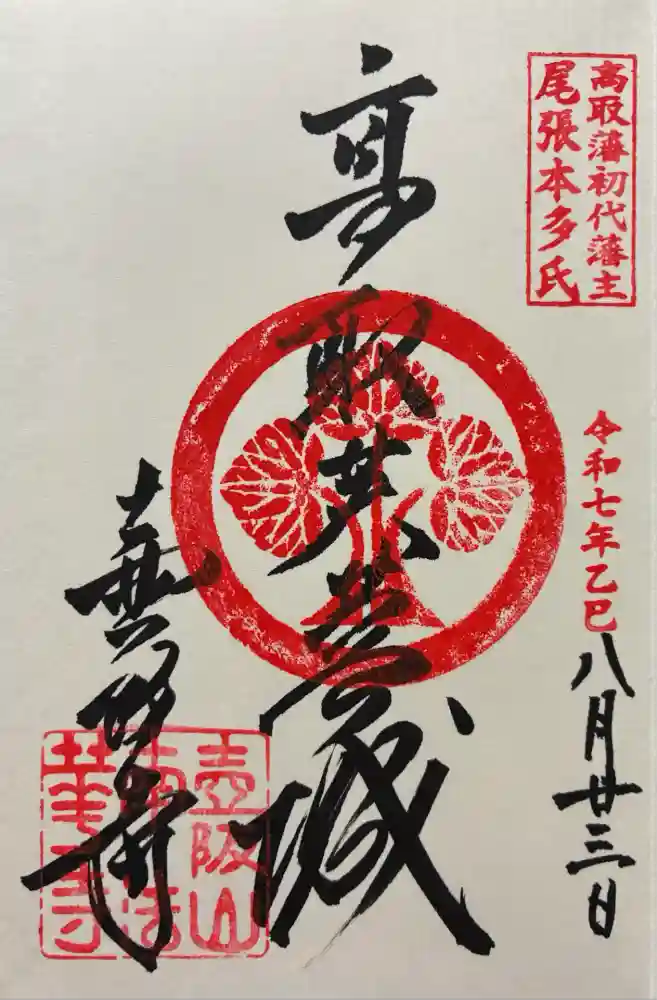 高取藩初代藩主
尾張本多氏
令和七年乙巳八月廿三日
高取芙蓉城
壷阪寺
壺阪山
南法
華寺